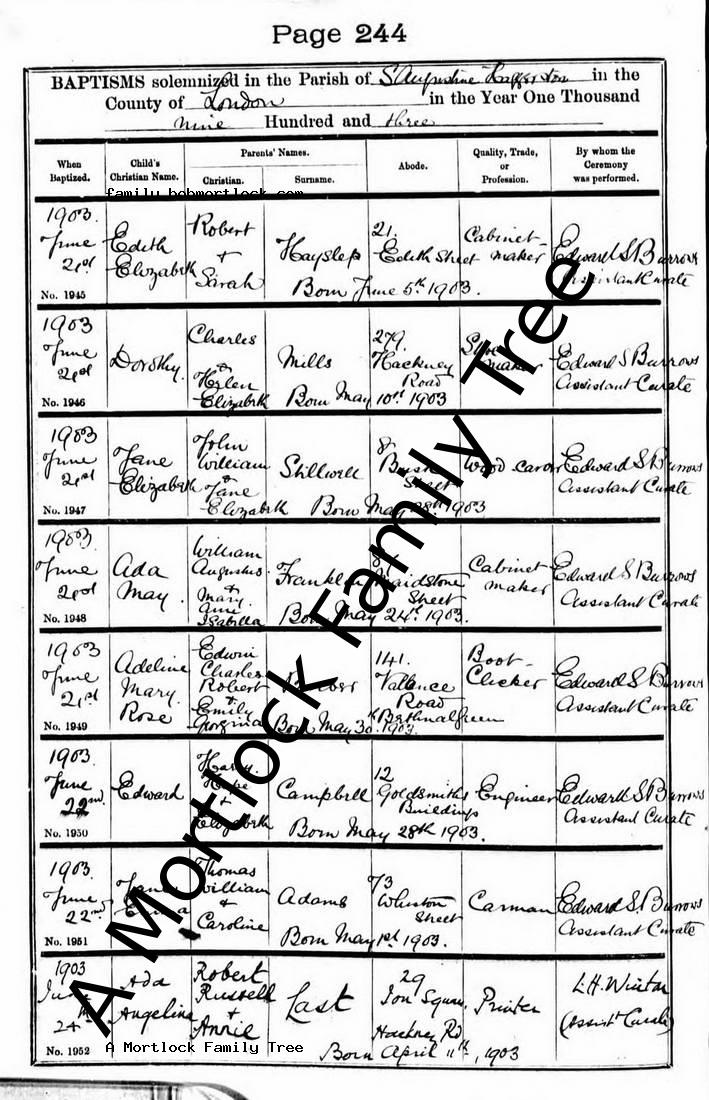 Page 244
BAPTISMS solemnized in the Parish of S Augustine Haggerston in the
County of London in the Year One Thousand
nine Hundred and three
When Baptized. Child's Christian Name. Parents' Names. Christian. Surname. Abode. Quality, Trade, or Profession. By whom the Ceremony was performed.
family.bobmortlock.com
1903 June 21st
No. 1945
Edith Elizabeth
Robert + Sarah
Hayslep
21. Edith Street
Cabinet-maker
Edward S Burrows Assistant Curate
Born June 5th 1903.
1903 June 21st
No. 1946
Dorothy.
Charles + Helen Elizabeth
Mills
279. Hackney Road
maker
Edward S Burrows Assistant Curate
Born May 10th 1903
1903 June 21st
No. 1947
Jane Elizabeth
John William + Jane Elizabeth
Stillwell
8 Street
Wood carver
Edward S Burrows Assistant Curate
Born May 28th 1903
1903 June 21st
No. 1948
Ada May.
William Augustus + Mary Ann Isabella
Franklin
Maidstone Street
Cabinet maker
Edward S Burrows Assistant Curate
Born May 24th 1903.
1903 June 21st
No. 1949
Adeline Mary Rose
Edwin Charles Robert + Emily Georgina
141. Vallance Road Bethnal Green
Boot-Clicker
Edward S Burrows Assistant Curate
Born May 30th 1903.
1903. June 22nd.
No. 1950
Edward
Harry + Elizabeth
Campbell
12 Goldsmiths Buildings
Engineer
Edward S Burrows Assistant Curate
Born May 28th 1903.
1903. June 22nd
No. 1951
Thomas William + Caroline
Adams
73 Street
Carman
Edward S. Burrows Assistant Curate
Born May 1st 1903.
1903 June 24th
No. 1952
Ada Angelina
Robert Russell + Annie
Last
29 Ion Square Hackney Rd
Printer
L.H. Winter (Assistt Curate)
Born April 11th, 1903
A Mortlock Family Tree
A Mortlock Family Tree